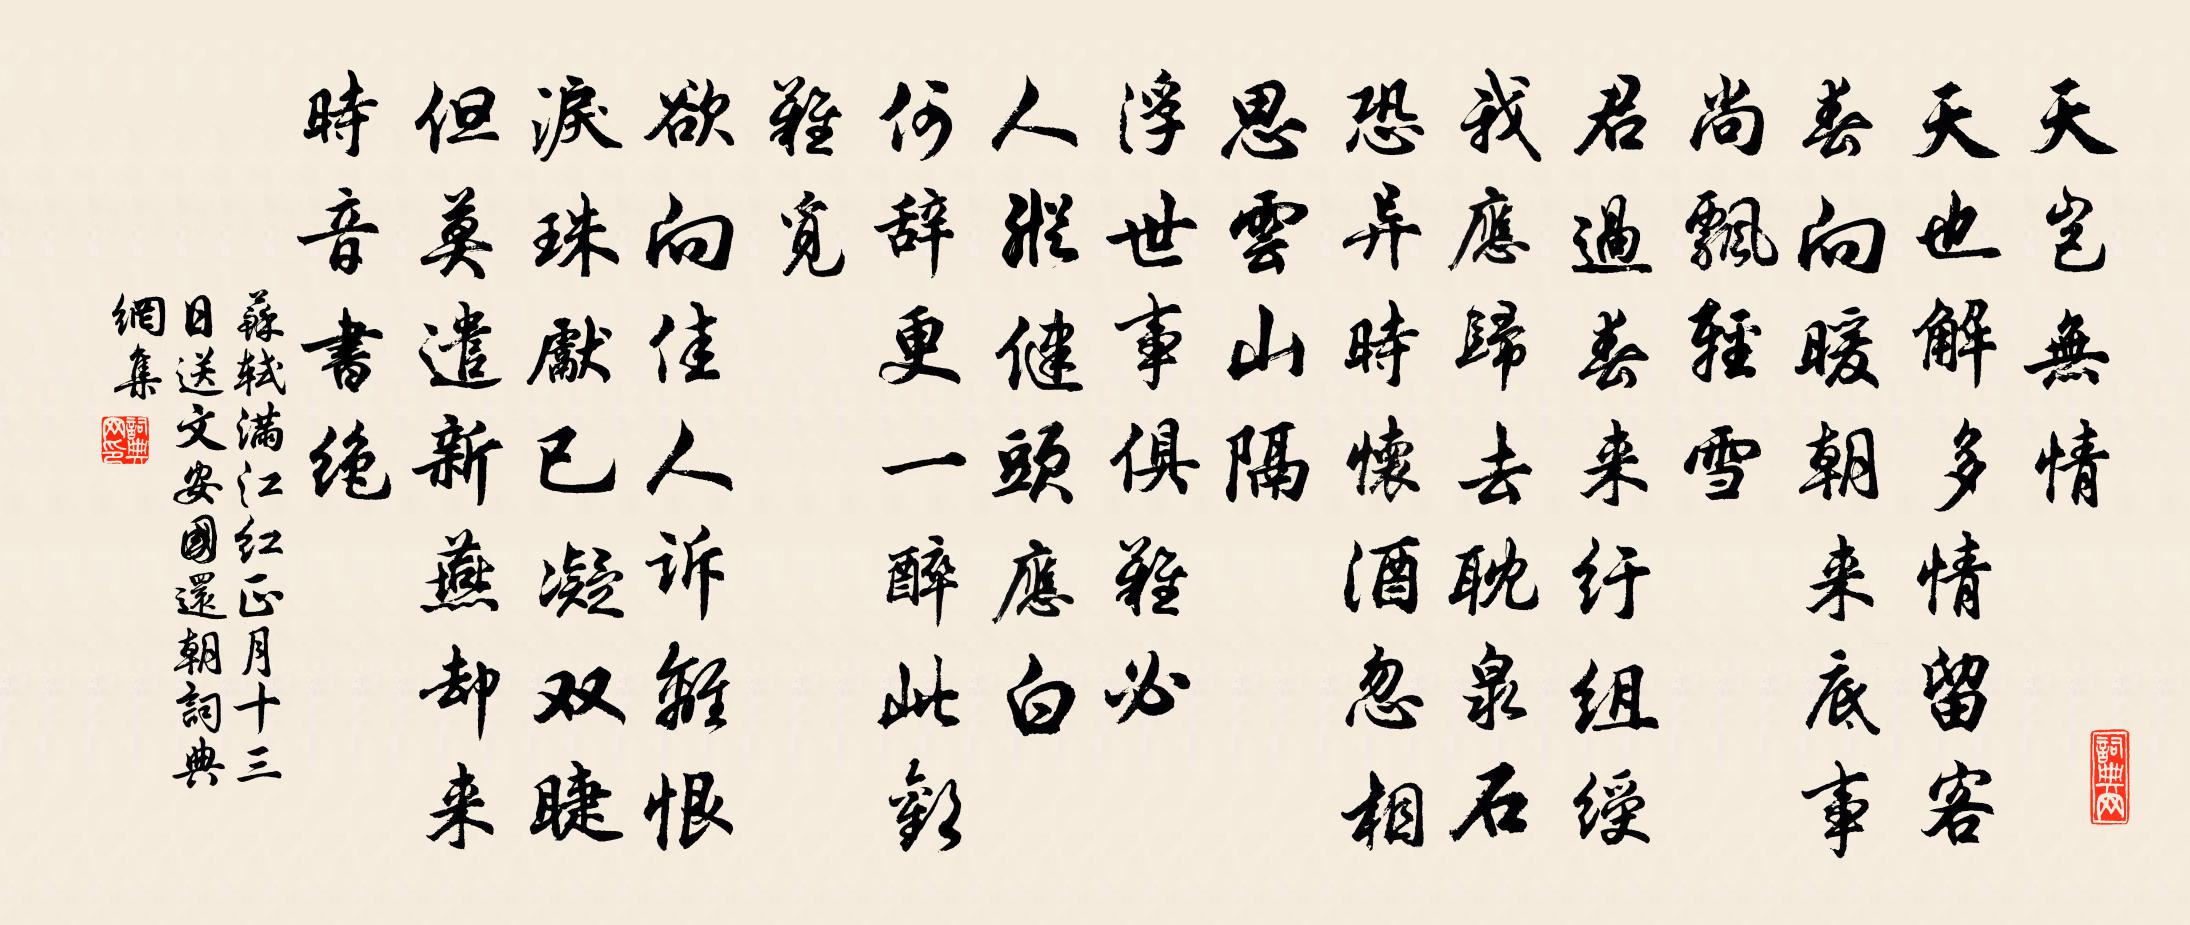 天岂無情
天也解多情留客
春向暖朝来底事
尚飄輕雪
君過春来纡組绶
我應歸去耽泉石
恐异時懷酒忽相
思雲山隔
浮世事俱難必
人縱健頭應白
何辞更一醉此歡
難覓
欲向佳人诉離恨
淚珠獻已凝双睫
但莫遣新燕却来
時音書绝
蘇轼满江红正月十三
日送文安國還朝詞典
網集
詞典网
詞典网印